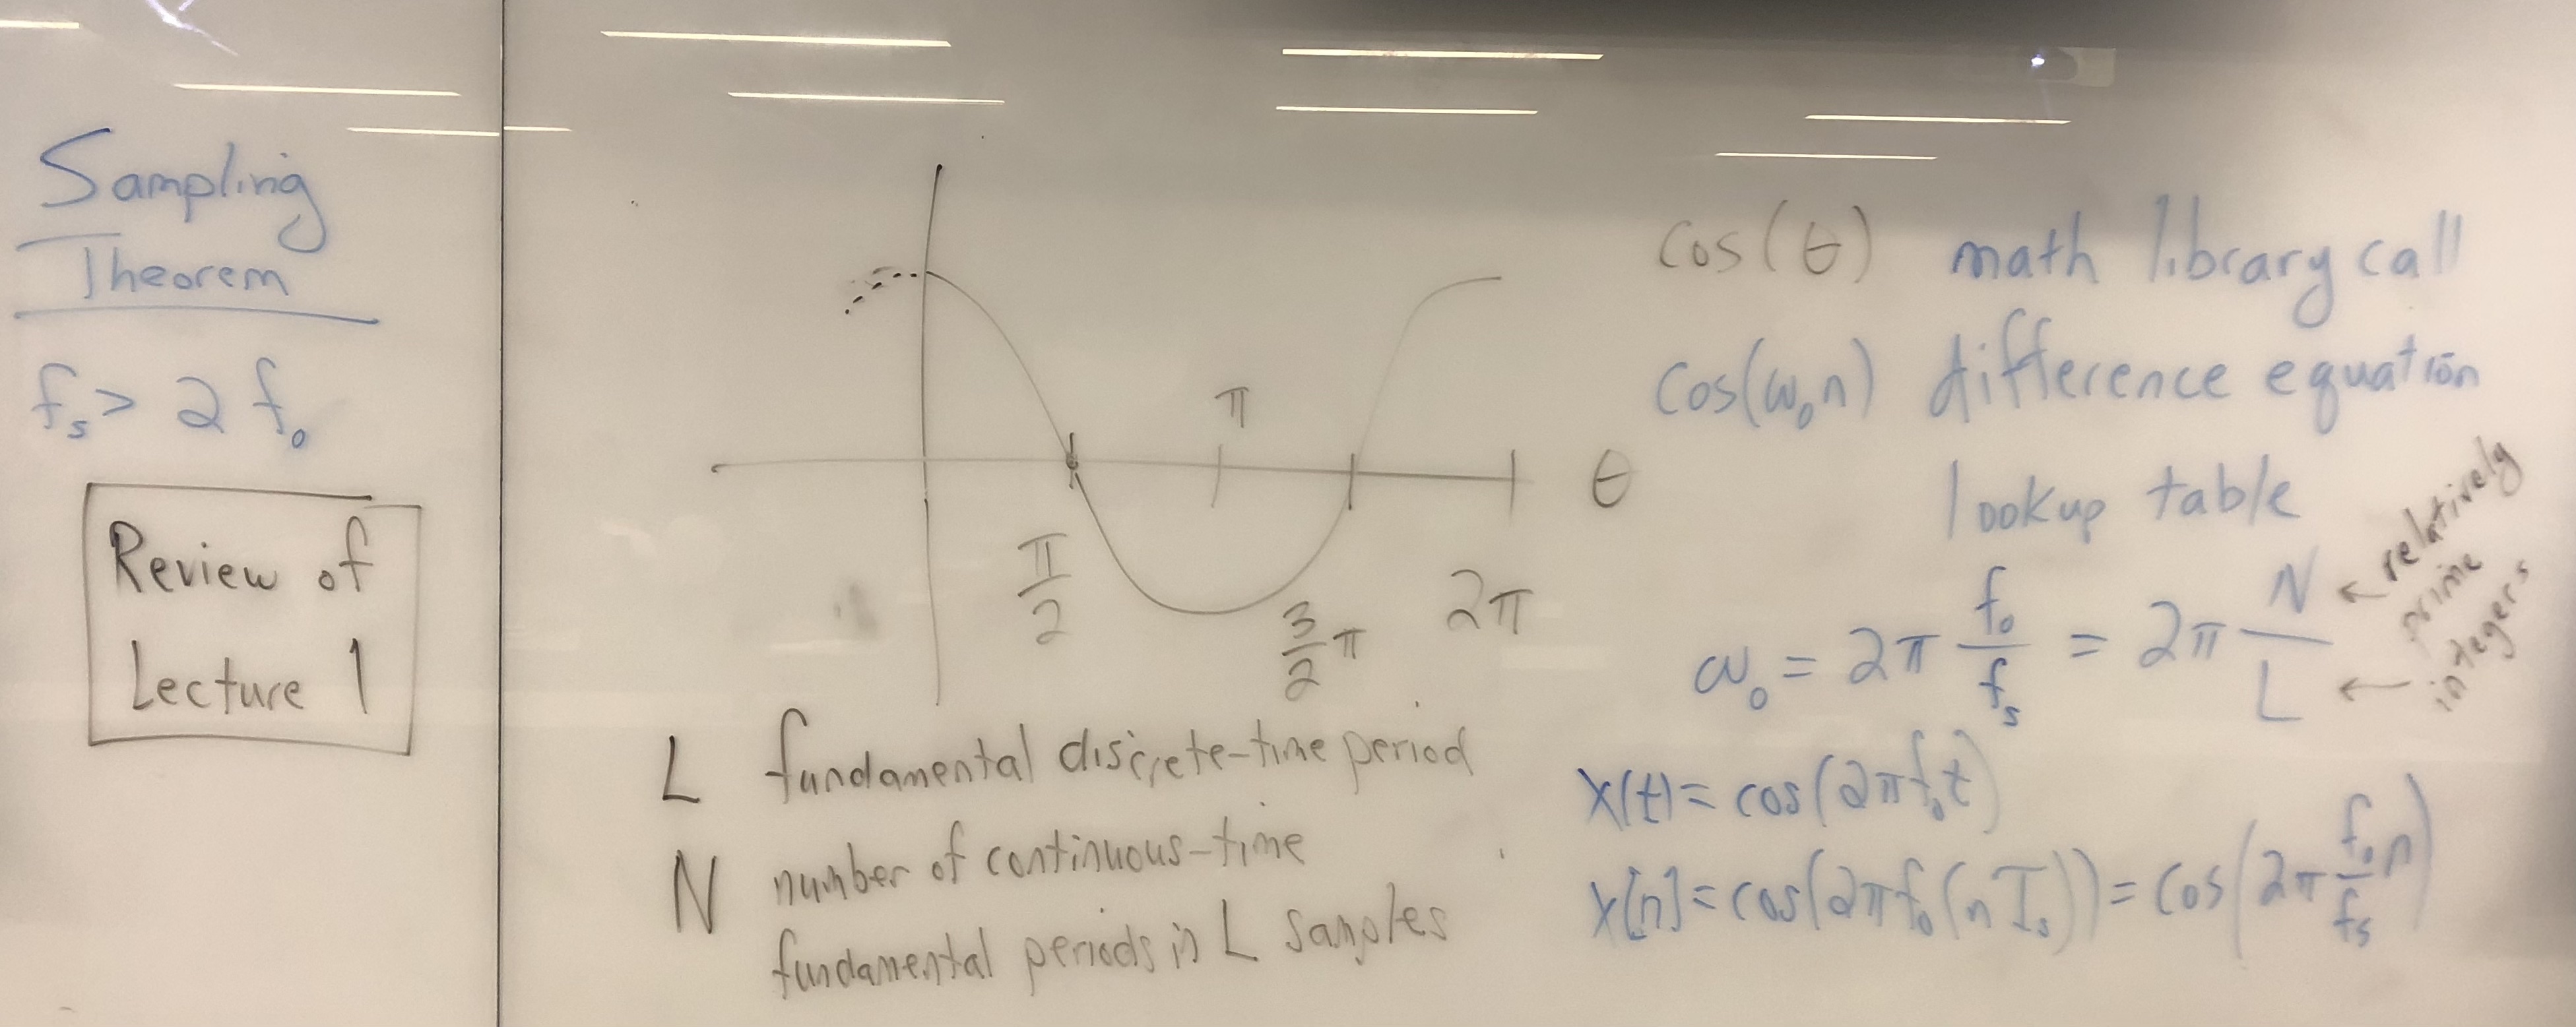 Sampling
Theorem
fs > 2 f₀
Review of
Lecture 1
π
θ
π/2
3/2 π
2π
L fundamental discrete-time period
N number of continuous-time
fundamental periods in L samples
cos(θ) math library call
cos(ω₀n) difference equation
lookup table
ω₀ = 2π f₀/fs = 2π N/L
← relatively
← prime
integers
x(t) = cos(2πf₀t)
x[n] = cos(2πf₀(n Ts)) = cos(2π f₀/fs n)